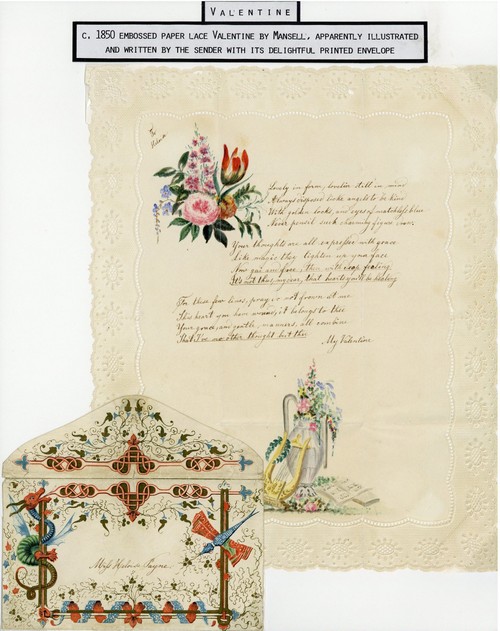 VALENTINE
C. 1850 EMBOSSED PAPER LACE VALENTINE BY MANSELL, APPARENTLY ILLUSTRATED
AND WRITTEN BY THE SENDER WITH ITS DELIGHTFUL PRINTED ENVELOPE
To
Lovely in form, lovelier still in mind
Always disposed like angels to be kind
With golden locks, and eyes of matchless blue
Never pencil such charming figure drew
Your thoughts are all expressed with grace
Like magic they lighten up your face
Now you are fore, then with deep feeling
It's not that, that
For these few lines, pray do not frown at me
This heart you have it belongs to thee
Your good, and gentle, manners, all combine
That I've no other thought but thee
My Valentine
Miss Payne